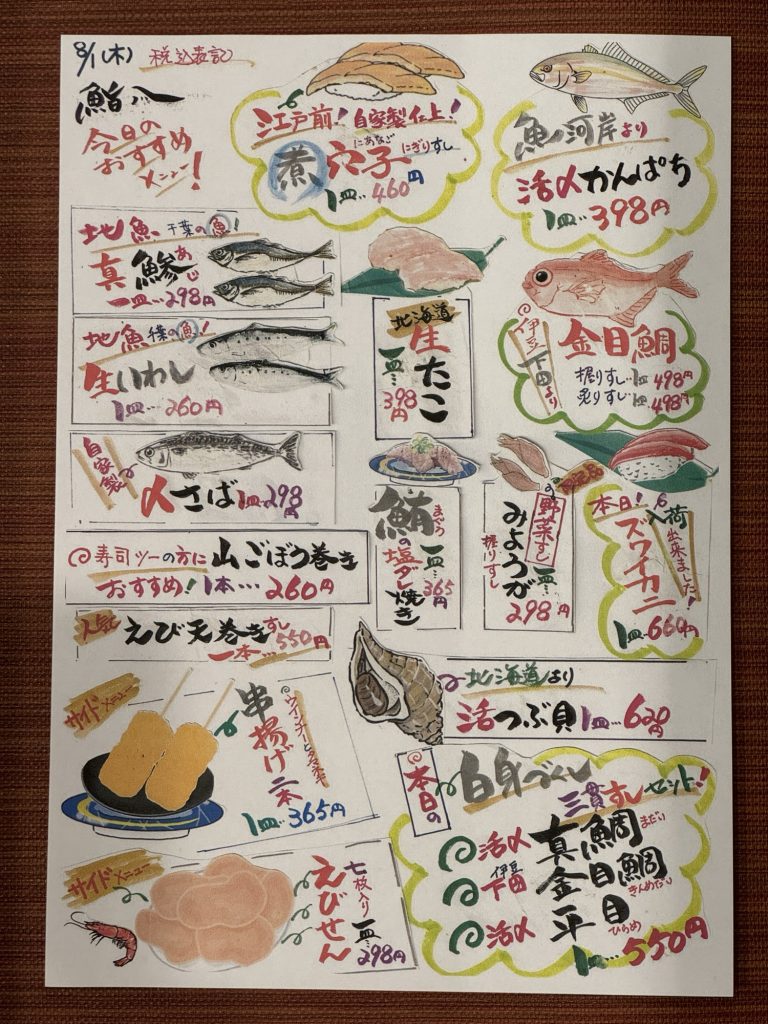 8/1(木) 税込表記
鮨八
今日の
おすすめ
メニュー!
江戸前! 自家製仕上!
にあなご にぎりすし
煮穴子
1皿…460円
魚河岸より
活〆かんぱち
1皿…398円
地魚 千葉の魚!
真鯵 あじ
一皿…298円
地魚 千葉の魚!
生いわし
1皿…260円
北海道
生たこ
一皿…398円
伊豆
下田より
金目鯛
握りすし…1皿498円
炙りすし…1皿498円
自家製
〆さば 1皿…298円
鮪 まぐろ
の塩ダレ焼き
一皿…365円
野菜すし
みょうが
握りすし
一皿…298円
本日!入荷出来ました!
ズワイカニ
1皿…660円
寿司ツーの方に 山ごぼう巻き
おすすめ! 1本…260円
人気 えび天巻きすし
一本…550円
北海道より
活つぶ貝 1皿…620円
サイドメニュー
串揚げ二本
1皿…365円
サイドメニュー
七枚入り
えびせん
一皿…298円
本日の
白身づくし
三貫すしセット!
活〆 真鯛 まだい
伊豆
下田 金目鯛 きんめだい
活〆 平目 ひらめ
1皿…550円